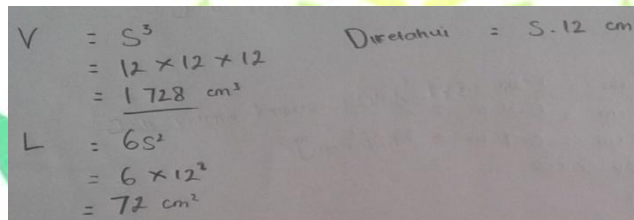 V = S³ Diketahui = S. 12 cm
= 12 × 12 × 12
= 1 728 cm³
L = 6S²
= 6 × 12²
= 72 cm²